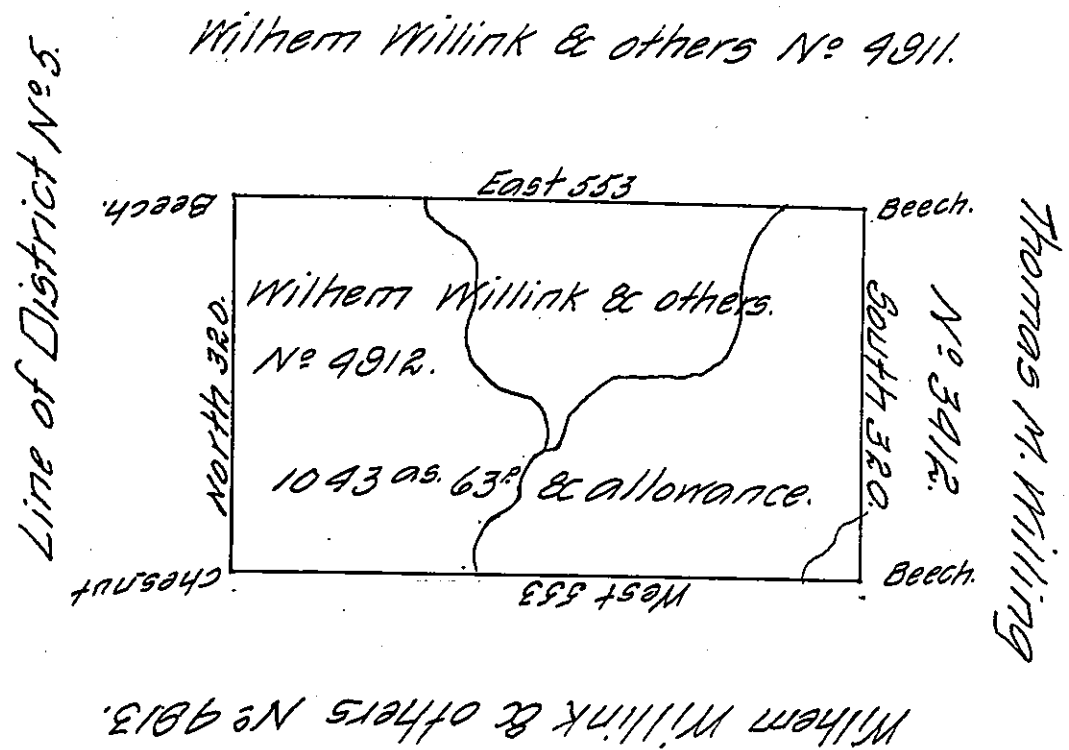 Wilhem Willink & others Nº 4911.
Line of District Nº 5.
Beech.
East 553
Beech.
North 320.
Wilhem Willink & others.
Nº 4912.
1043 as. 63 p & allowance.
South 320.
Thomas M. Willing
Nº 3412.
Chesnut
West 553
Beech.
Wilhem Willink & others Nº 4913.